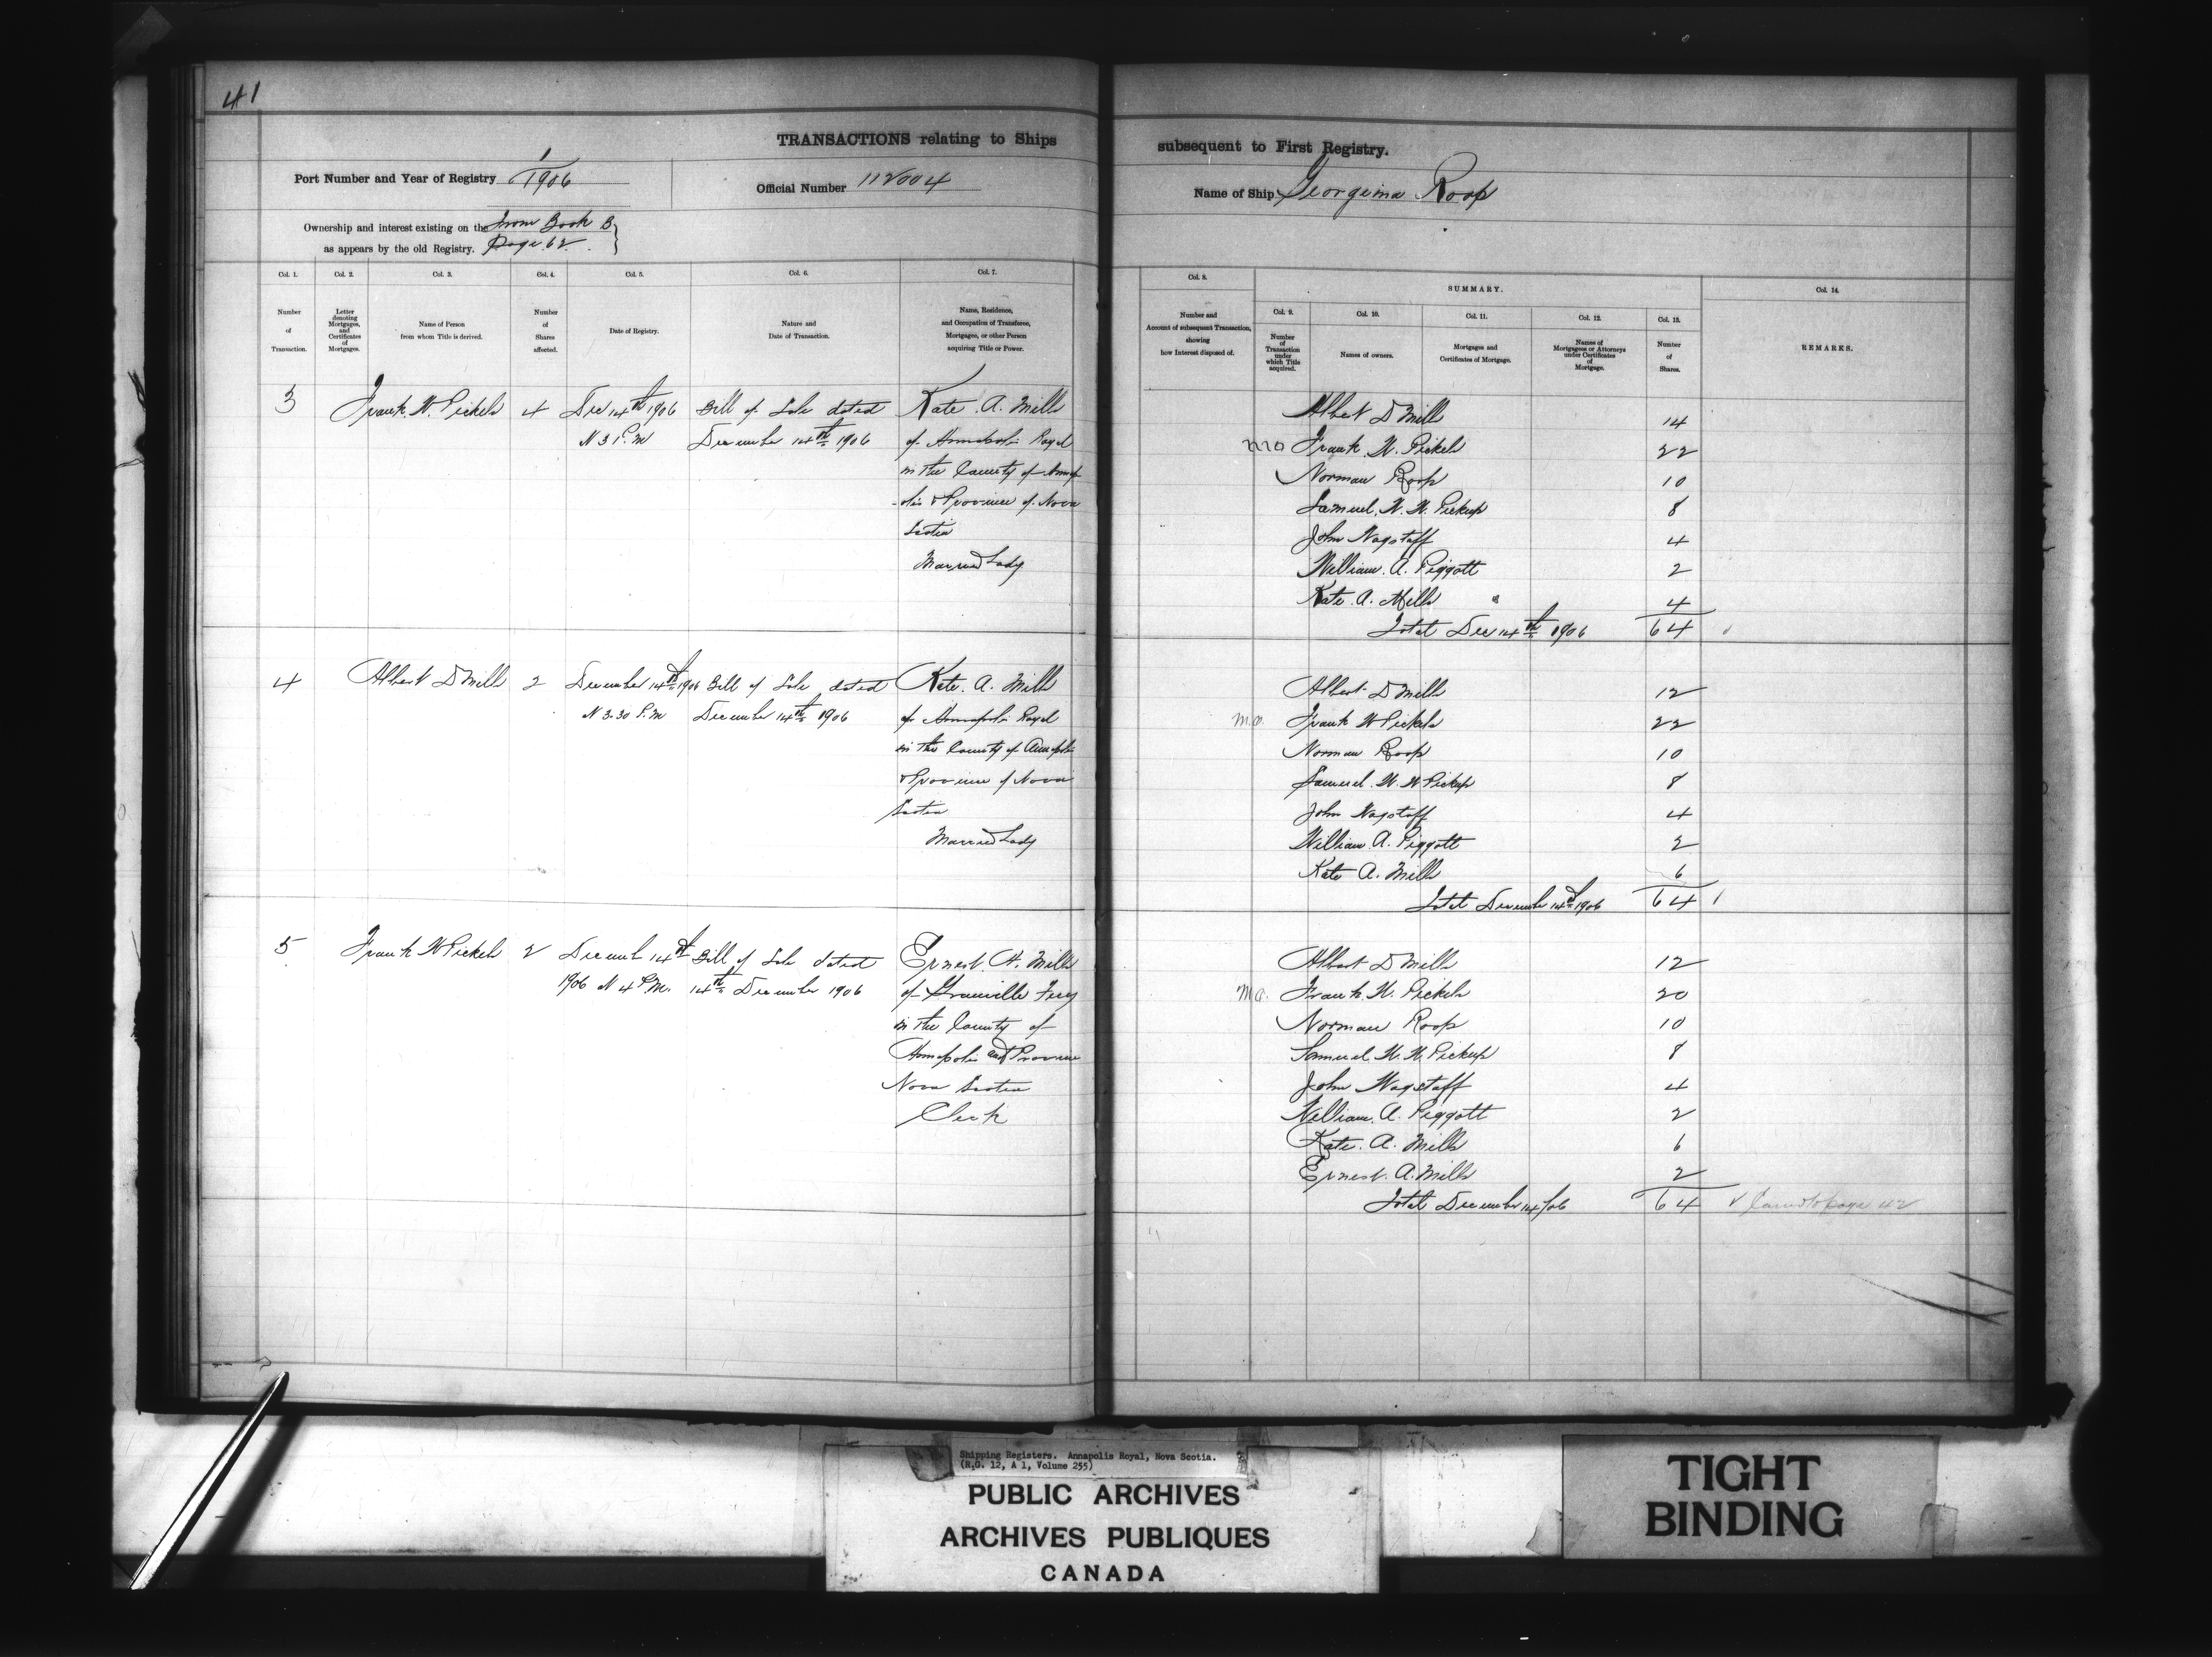 41
TRANSACTIONS relating to Ships subsequent to First Registry.
Port Number and Year of Registry 1/1906
Official Number 112004
Name of Ship Georgina Roop
Ownership and interest existing on the From Book B
as appears by the old Registry. Page 62
Col. 1. Col. 2. Col. 3. Col. 4. Col. 5. Col. 6. Col. 7. Col. 8. SUMMARY. Col. 14.
Col. 9. Col. 10. Col. 11. Col. 12. Col. 13.
Number of Transaction.
Letter denoting Mortgages, and Certificates of Mortgages.
Name of Person from whom Title is derived.
Number of Shares affected.
Date of Registry.
Nature and Date of Transaction.
Name, Residence, and Occupation of Transferee, Mortgagee, or other Person acquiring Title or Power.
Number and Account of subsequent Transaction, showing how Interest disposed of.
Number of Transaction under which Title acquired.
Names of owners.
Mortgages and Certificates of Mortgage.
Names of Mortgagees or Attorneys under Certificates of Mortgage.
Number of Shares.
REMARKS.
3 Frank W. Pickels 4 Dec 14th 1906 Bill of Sale dated Kate A. Mills
3 P.M December 14th 1906 of Annapolis Royal
in the County of Annap
-olis & Province of Nova
Scotia
Married Lady
Albert D Mills 14
M.O Frank W. Pickels 22
Norman Roop 10
Samuel W. W. Pickup 8
John Wagstaff 4
William A. Piggott 2
Kate A. Mills 4
Total Dec 14th 1906 64
4 Albert D Mills 2 December 14th 1906 Bill of Sale dated Kate A. Mills
3.30 P.M December 14th 1906 of Annapolis Royal
in the County of Annapolis
& Province of Nova
Scotia
Married Lady
Albert D Mills 12
M.O. Frank W Pickels 22
Norman Roop 10
Samuel W. W Pickup 8
John Wagstaff 4
William A. Piggott 2
Kate A. Mills 6
Total December 14th 1906 64
5 Frank W Pickels 2 Decemb 14th Bill of Sale dated Ernest A. Mills
1906 4 P.M. 14th December 1906 of Granville Ferry
in the County of
Annapolis and Province
Nova Scotia
Clerk
Albert D Mills 12
M.O. Frank W. Pickels 20
Norman Roop 10
Samuel W. W. Pickup 8
John Wagstaff 4
William A. Piggott 2
Kate A. Mills 6
Ernest A. Mills 2
Total December 14/06 64 page 42
Shipping Registers. Annapolis Royal, Nova Scotia.
(R.G. 12, A 1, Volume 255)
PUBLIC ARCHIVES
ARCHIVES PUBLIQUES
CANADA
TIGHT
BINDING